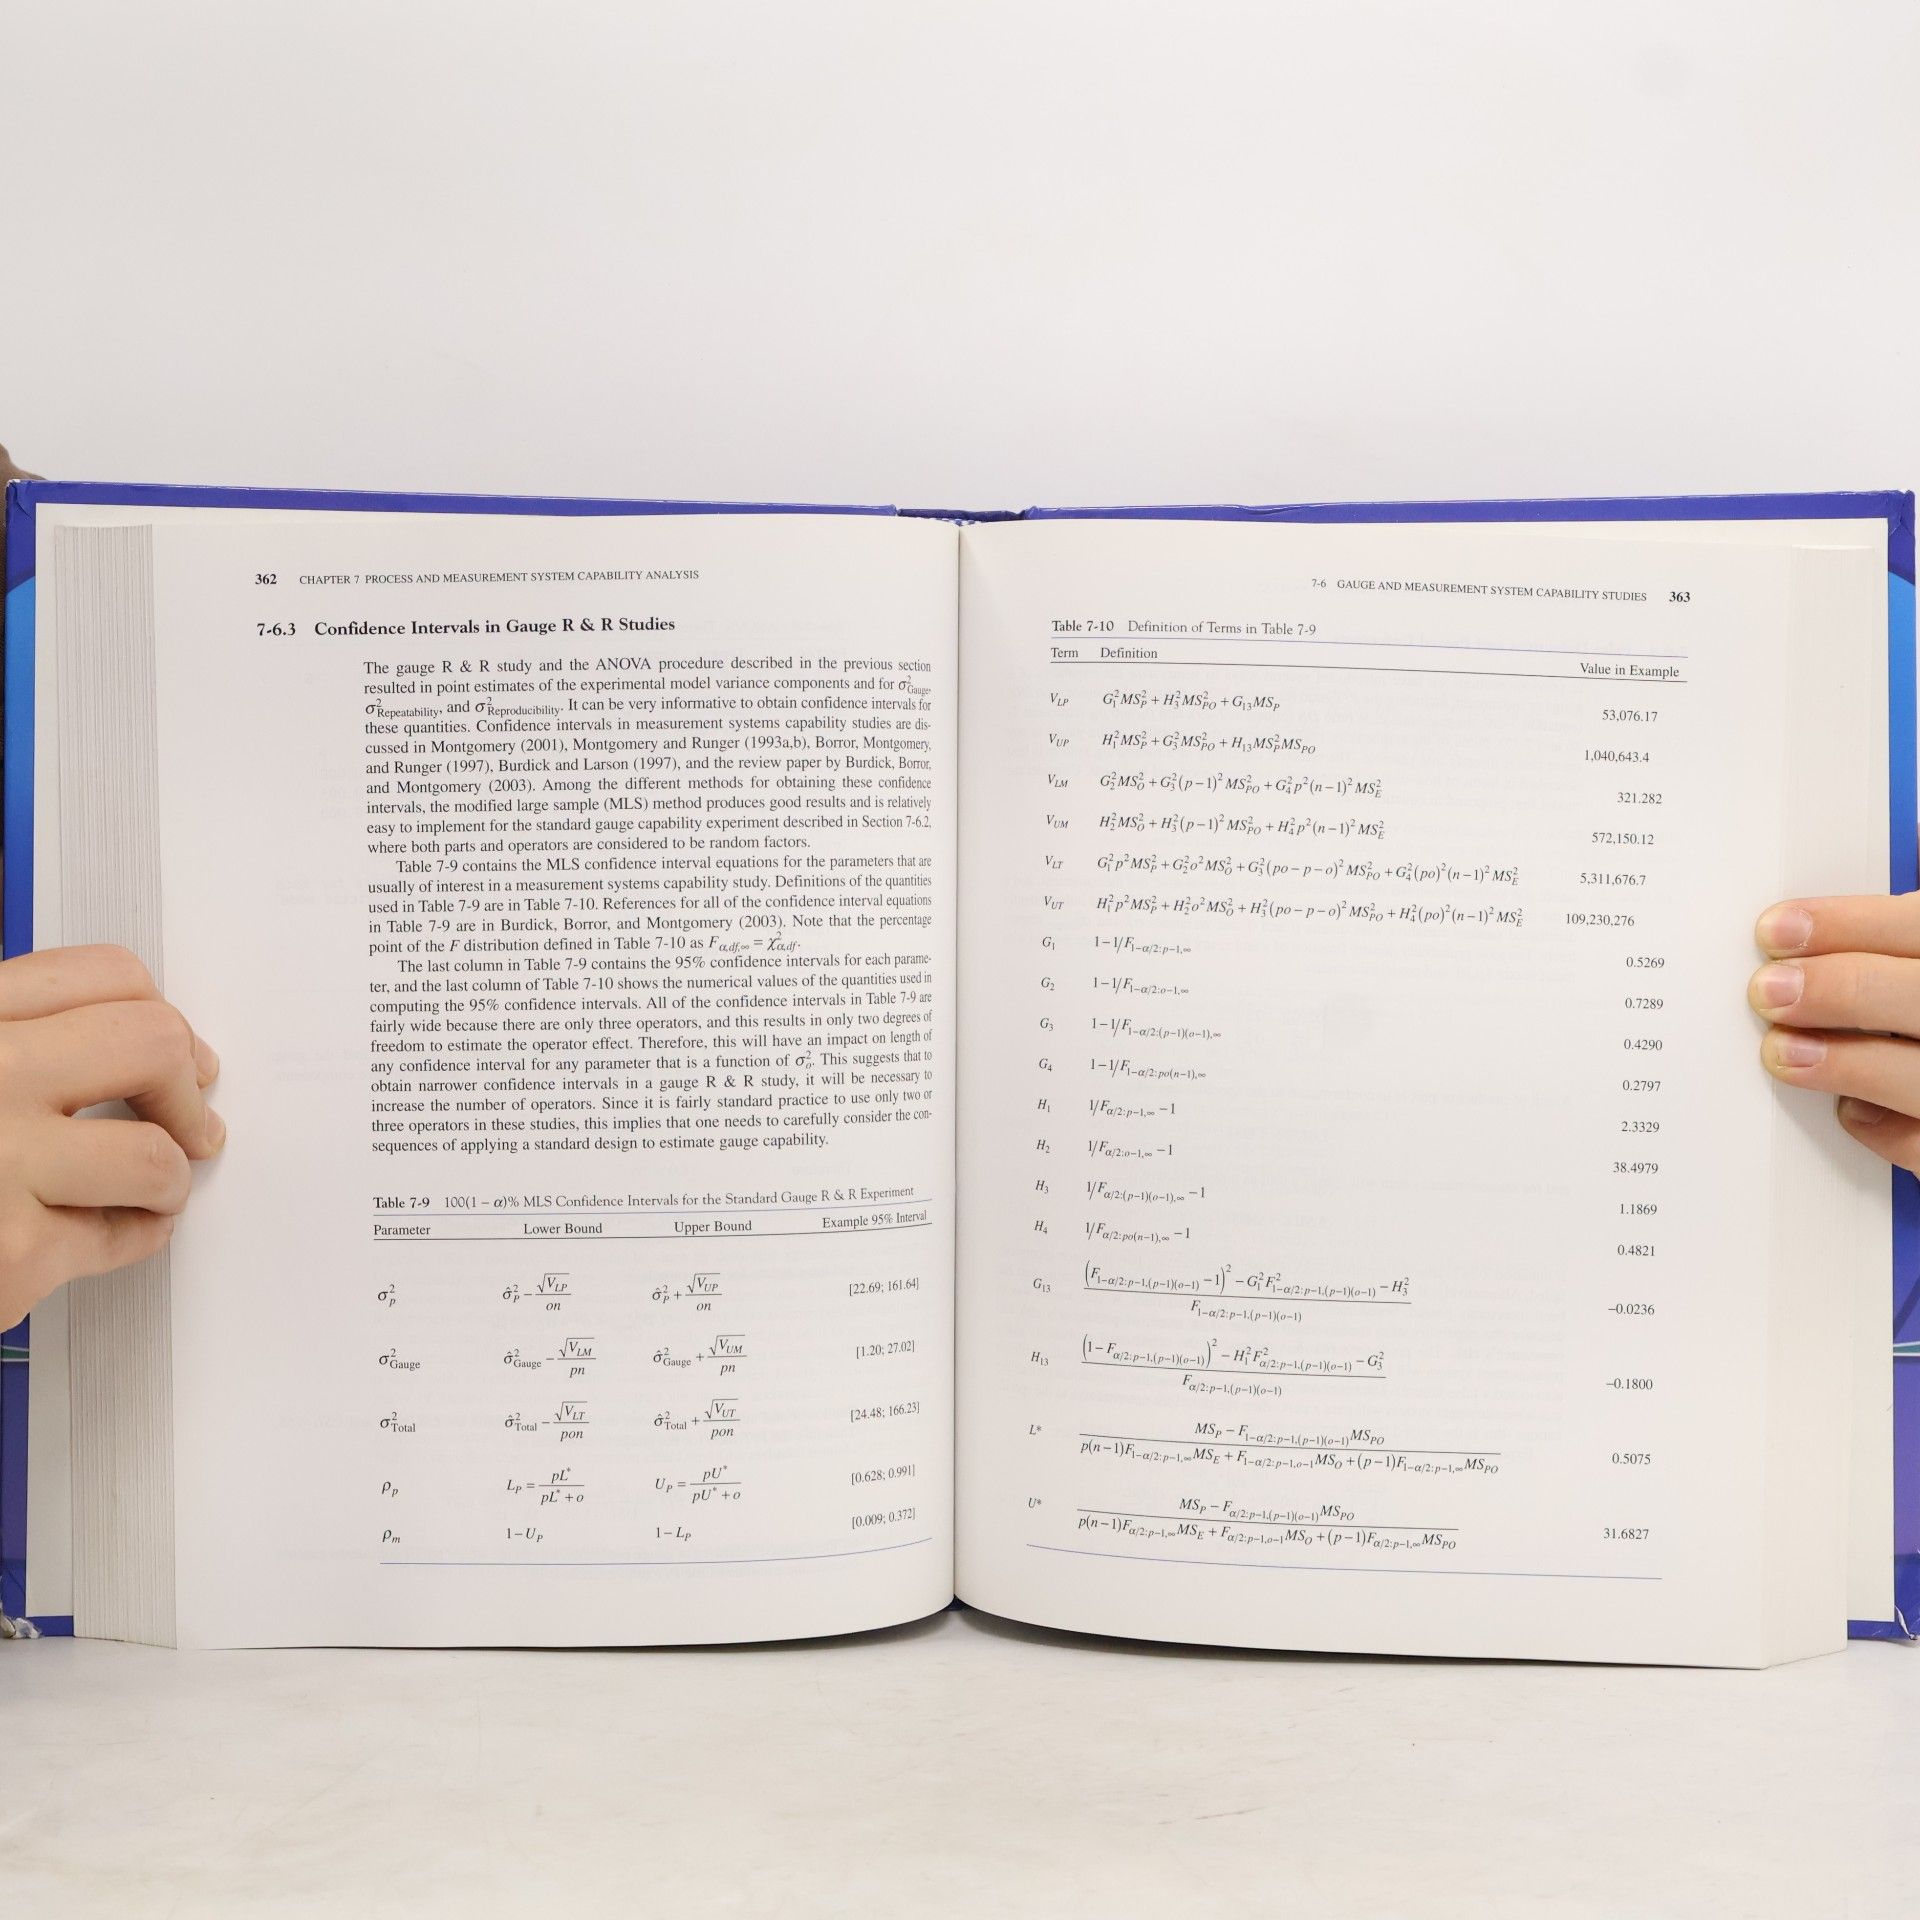 362 CHAPTER 7 PROCESS AND MEASUREMENT SYSTEM CAPABILITY ANALYSIS
7-6.3 Confidence Intervals in Gauge R & R Studies
The gauge R & R study and the ANOVA procedure described in the previous section
resulted in point estimates of the experimental model variance components and for σ²_Gauge,
σ²_Repeatability, and σ²_Reproducibility. It can be very informative to obtain confidence intervals for
these quantities. Confidence intervals in measurement systems capability studies are dis-
cussed in Montgomery (2001), Montgomery and Runger (1993a,b), Borror, Montgomery,
and Runger (1997), Burdick and Larson (1997), and the review paper by Burdick, Borror,
and Montgomery (2003). Among the different methods for obtaining these confidence
intervals, the modified large sample (MLS) method produces good results and is relatively
easy to implement for the standard gauge capability experiment described in Section 7-6.2,
where both parts and operators are considered to be random factors.
Table 7-9 contains the MLS confidence interval equations for the parameters that are
usually of interest in a measurement systems capability study. Definitions of the quantities
used in Table 7-9 are in Table 7-10. References for all of the confidence interval equations
in Table 7-9 are in Burdick, Borror, and Montgomery (2003). Note that the percentage
point of the F distribution defined in Table 7-10 as F_α,df,∞ = χ²_α,df.
The last column in Table 7-9 contains the 95% confidence intervals for each parame-
ter, and the last column of Table 7-10 shows the numerical values of the quantities used in
computing the 95% confidence intervals. All of the confidence intervals in Table 7-9 are
fairly wide because there are only three operators, and this results in only two degrees of
freedom to estimate the operator effect. Therefore, this will have an impact on length of
any confidence interval for any parameter that is a function of σ²_o. This suggests that to
obtain narrower confidence intervals in a gauge R & R study, it will be necessary to
increase the number of operators. Since it is fairly standard practice to use only two or
three operators in these studies, this implies that one needs to carefully consider the con-
sequences of applying a standard design to estimate gauge capability.
Table 7-9 100(1 − α)% MLS Confidence Intervals for the Standard Gauge R & R Experiment
Parameter Lower Bound Upper Bound Example 95% Interval
σ²_p σ̂²_P − √V_LP / on σ̂²_P + √V_UP / on [22.69; 161.64]
σ²_Gauge σ̂²_Gauge − √V_LM / pn σ̂²_Gauge + √V_UM / pn [1.20; 27.02]
σ²_Total σ̂²_Total − √V_LT / pon σ̂²_Total + √V_UT / pon [24.48; 166.23]
ρ_p L_P = pL* / (pL* + o) U_P = pU* / (pU* + o) [0.628; 0.991]
ρ_m 1−U_P 1−L_P [0.009; 0.372]
7-6 GAUGE AND MEASUREMENT SYSTEM CAPABILITY STUDIES 363
Table 7-10 Definition of Terms in Table 7-9
Term Definition Value in Example
V_LP G₁²MS_P² + H₃²MS_PO² + G₁₃MS_P 53,076.17
V_UP H₁²MS_P² + G₃²MS_PO² + H₁₃MS_P²MS_PO 1,040,643.4
V_LM G₂²MS_O² + G₃²(p−1)²MS_PO² + G₄²p²(n−1)²MS_E² 321.282
V_UM H₂²MS_O² + H₃²(p−1)²MS_PO² + H₄²p²(n−1)²MS_E² 572,150.12
V_LT G₁²p²MS_P² + G₂²o²MS_O² + G₃²(po−p−o)²MS_PO² + G₄²(po)²(n−1)²MS_E² 5,311,676.7
V_UT H₁²p²MS_P² + H₂²o²MS_O² + H₃²(po−p−o)²MS_PO² + H₄²(po)²(n−1)²MS_E² 109,230,276
G₁ 1−1/F_1−α/2:p−1,∞ 0.5269
G₂ 1−1/F_1−α/2:o−1,∞ 0.7289
G₃ 1−1/F_1−α/2:(p−1)(o−1),∞ 0.4290
G₄ 1−1/F_1−α/2:po(n−1),∞ 0.2797
H₁ 1/F_α/2:p−1,∞ −1 2.3329
H₂ 1/F_α/2:o−1,∞ −1 38.4979
H₃ 1/F_α/2:(p−1)(o−1),∞ −1 1.1869
H₄ 1/F_α/2:po(n−1),∞ −1 0.4821
G₁₃ ((F_1−α/2:p−1,(p−1)(o−1) −1)² − G₁²F²_1−α/2:p−1,(p−1)(o−1) − H₃²) / F_1−α/2:p−1,(p−1)(o−1) −0.0236
H₁₃ ((1−F_α/2:p−1,(p−1)(o−1))² − H₁²F²_α/2:p−1,(p−1)(o−1) − G₃²) / F_α/2:p−1,(p−1)(o−1) −0.1800
L* (MS_P − F_1−α/2:p−1,(p−1)(o−1)MS_PO) / (p(n−1)F_1−α/2:p−1,∞MS_E + F_1−α/2:p−1,o−1MS_O + (p−1)F_1−α/2:p−1,∞MS_PO) 0.5075
U* (MS_P − F_α/2:p−1,(p−1)(o−1)MS_PO) / (p(n−1)F_α/2:p−1,∞MS_E + F_α/2:p−1,o−1MS_O + (p−1)F_α/2:p−1,∞MS_PO) 31.6827